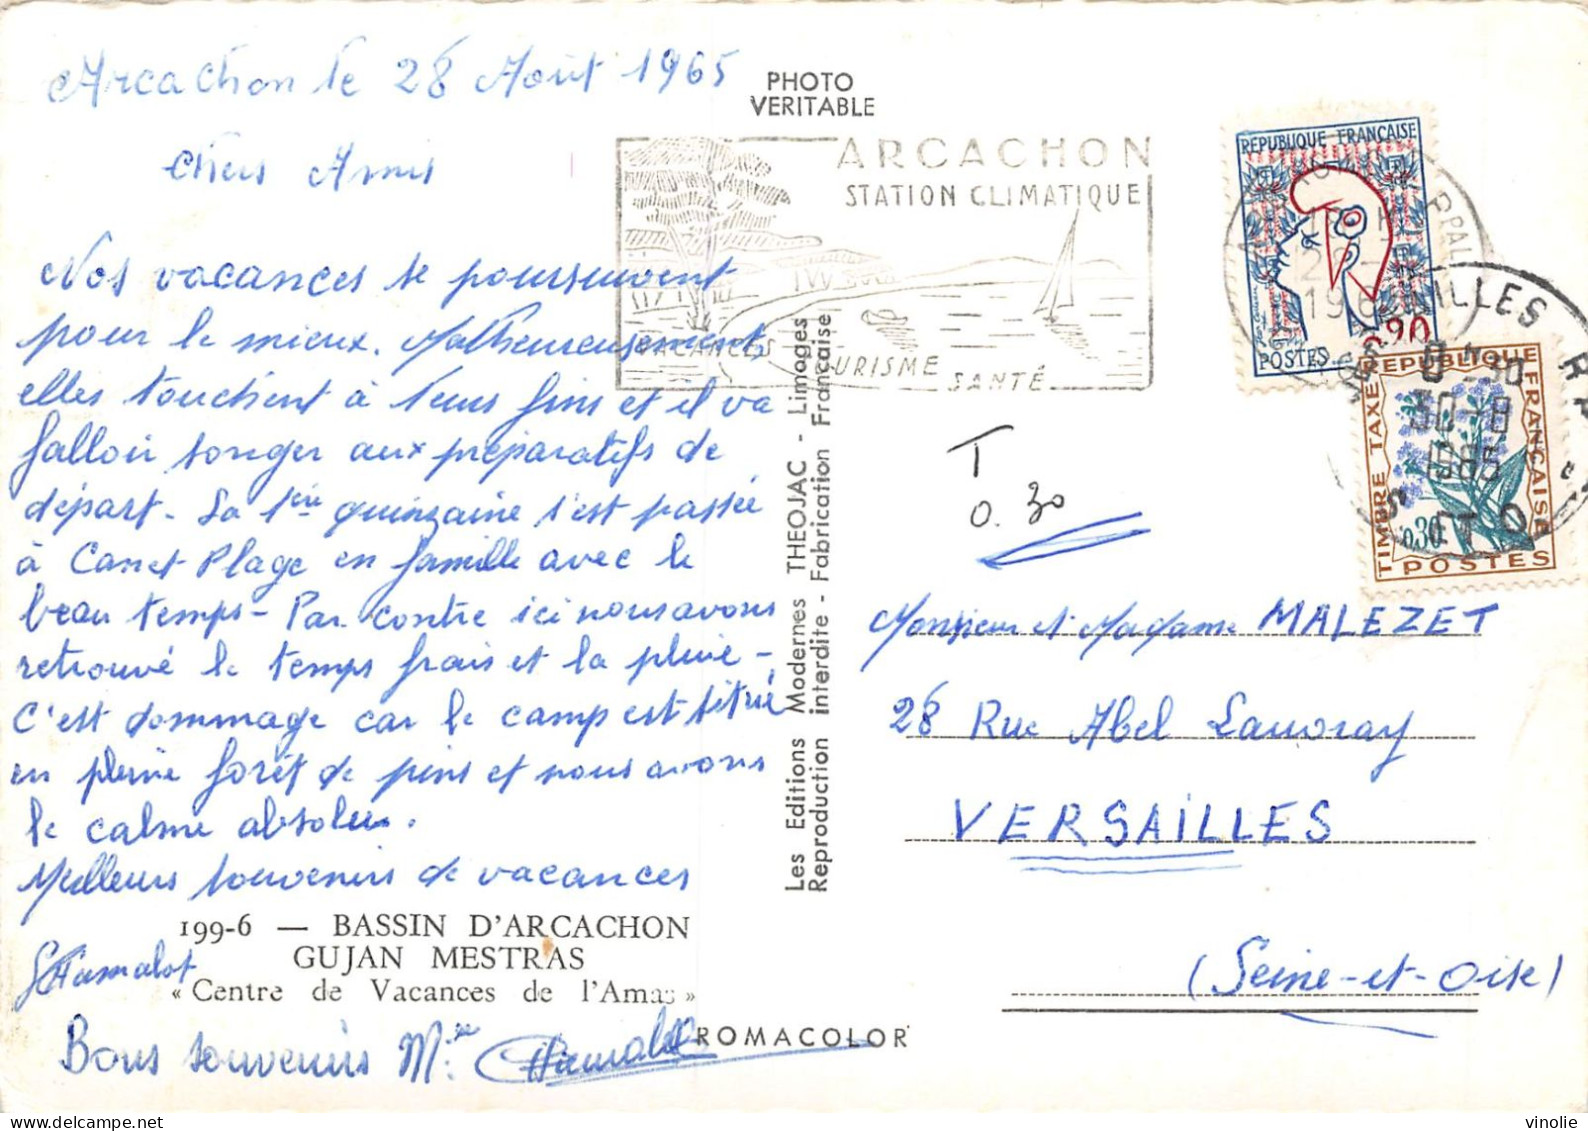 Arcachon le 28 Août 1965
Chers Amis
Nos vacances se poursuivent
pour le mieux. Malheureusement,
elles touchent à leurs fins et il va
falloir songer aux préparatifs de
départ. La 1ère quinzaine s'est passée
à Canet-Plage en famille avec le
beau temps - Par contre ici nous avons
retrouvé le temps frais et la pluie -
C'est dommage car le camp est situé
en pleine forêt de pins et nous avons
le calme absolu.
Meilleurs souvenirs de vacances
199-6 — BASSIN D'ARCACHON
GUJAN MESTRAS
« Centre de Vacances de l'Amas »
Bons souvenirs
PHOTO
VERITABLE
ARCACHON
STATION CLIMATIQUE
VACANCES
TOURISME
SANTÉ
Les Editions Modernes THEOJAC - Limoges
Reproduction interdite - Fabrication Française
REPUBLIQUE FRANÇAISE
POSTES
0.30
REPUBLIQUE
FRANÇAISE
TIMBRE TAXE
0,30
POSTES
30-8
1965
T
0.30
Monsieur et Madame MALEZET
28 Rue Abel Lauvray
VERSAILLES
(Seine-et-Oise)
ROMACOLOR
vinolie